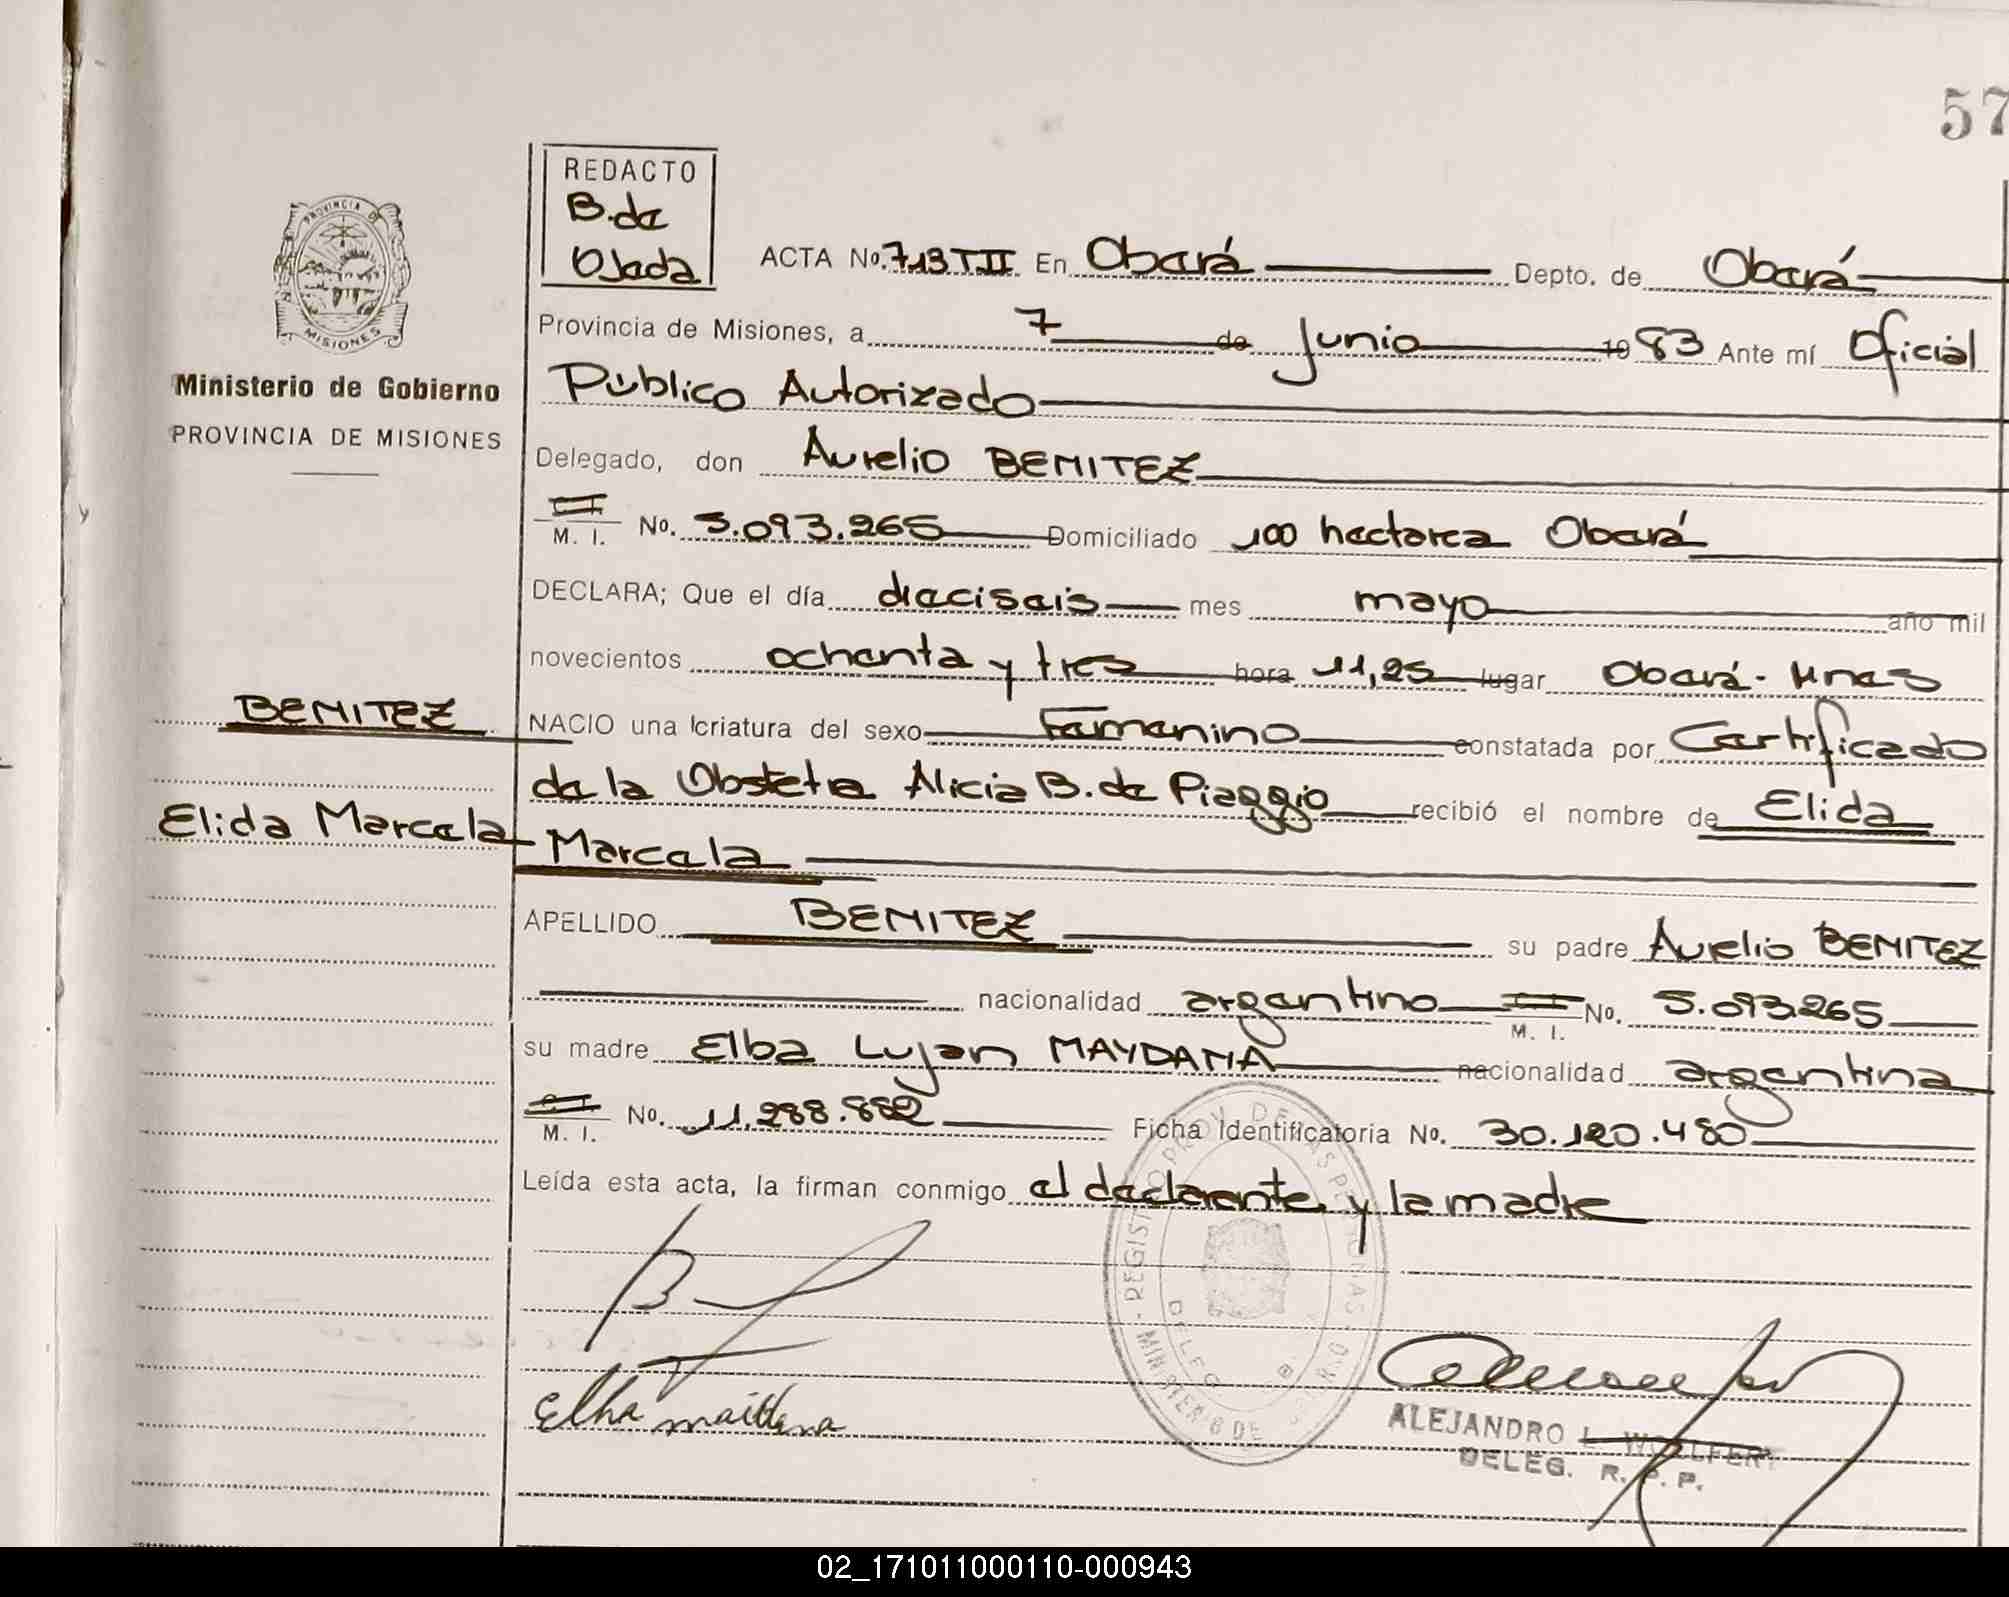 57
REDACTO
B. de
Ojeda
PROVINCIA DE
MISIONES
Ministerio de Gobierno
PROVINCIA DE MISIONES
ACTA No. 713 TII En Oberá Depto. de Oberá
Provincia de Misiones, a 7 de Junio 1983 Ante mí Oficial
Público Autorizado
Delegado, don Aurelio BENITEZ
C. I.
M. I. No. 5.093.265 Domiciliado 100 hectarea Oberá
DECLARA; Que el día dieciseis mes mayo año mil
novecientos ochenta y tres hora 11,25 lugar Oberá - Mnes
BENITEZ
NACIO una criatura del sexo Femenino constatada por Certificado
de la Obstetra Alicia B. de Piaggio recibió el nombre de Elida
Elida Marcela
Marcela
APELLIDO BENITEZ su padre Aurelio BENITEZ
nacionalidad argentino C. I. M. I. No. 5.093.265
su madre Elba Lujan MAYDANA nacionalidad argentina
C. I.
M. I. No. 11.288.882 Ficha Identificatoria No. 30.120.480
Leída esta acta, la firman conmigo el declarante y la madre
Elba maidana
ALEJANDRO L. WOLLFERT
DELEG. R. P. P.
02_171011000110-000943